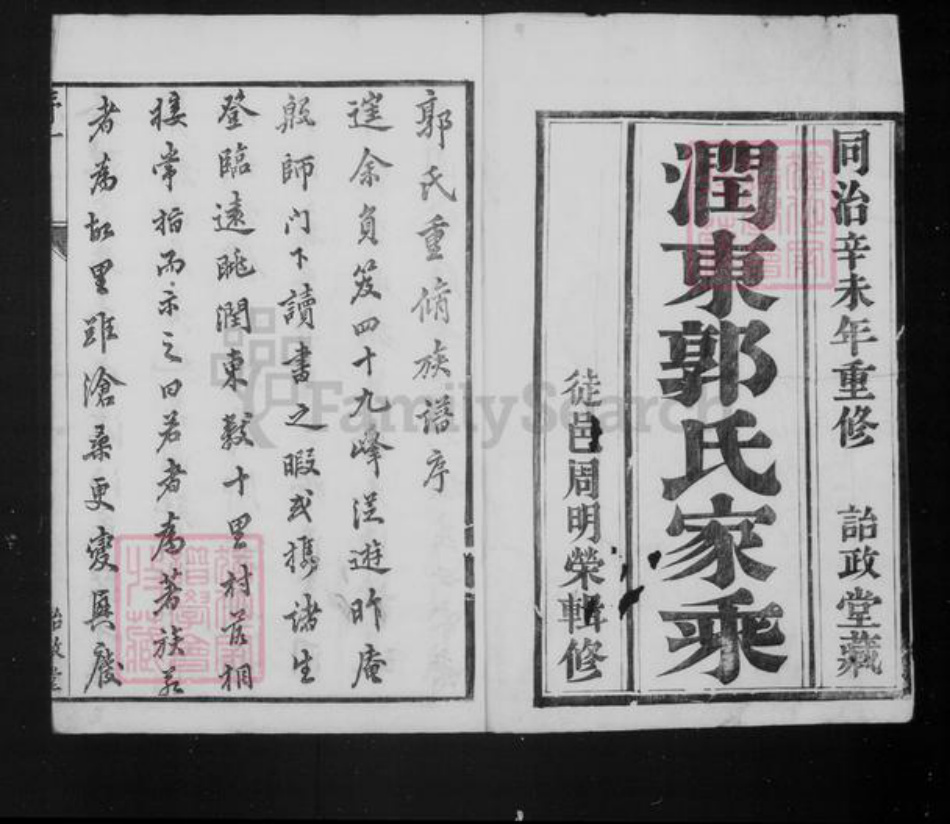 同治辛未年重修 詒政堂藏
潤東郭氏家乘
徒邑周明榮輯修
郭氏重脩族譜序
余負笈四十九峰從遊昨庵
殷師門下讀書之暇或攜諸生
登臨遠眺潤東數十里村落相
接常指而示之曰若者為著族若
者為故里雖滄桑更變興廢
序一
詒政堂
FamilySearch